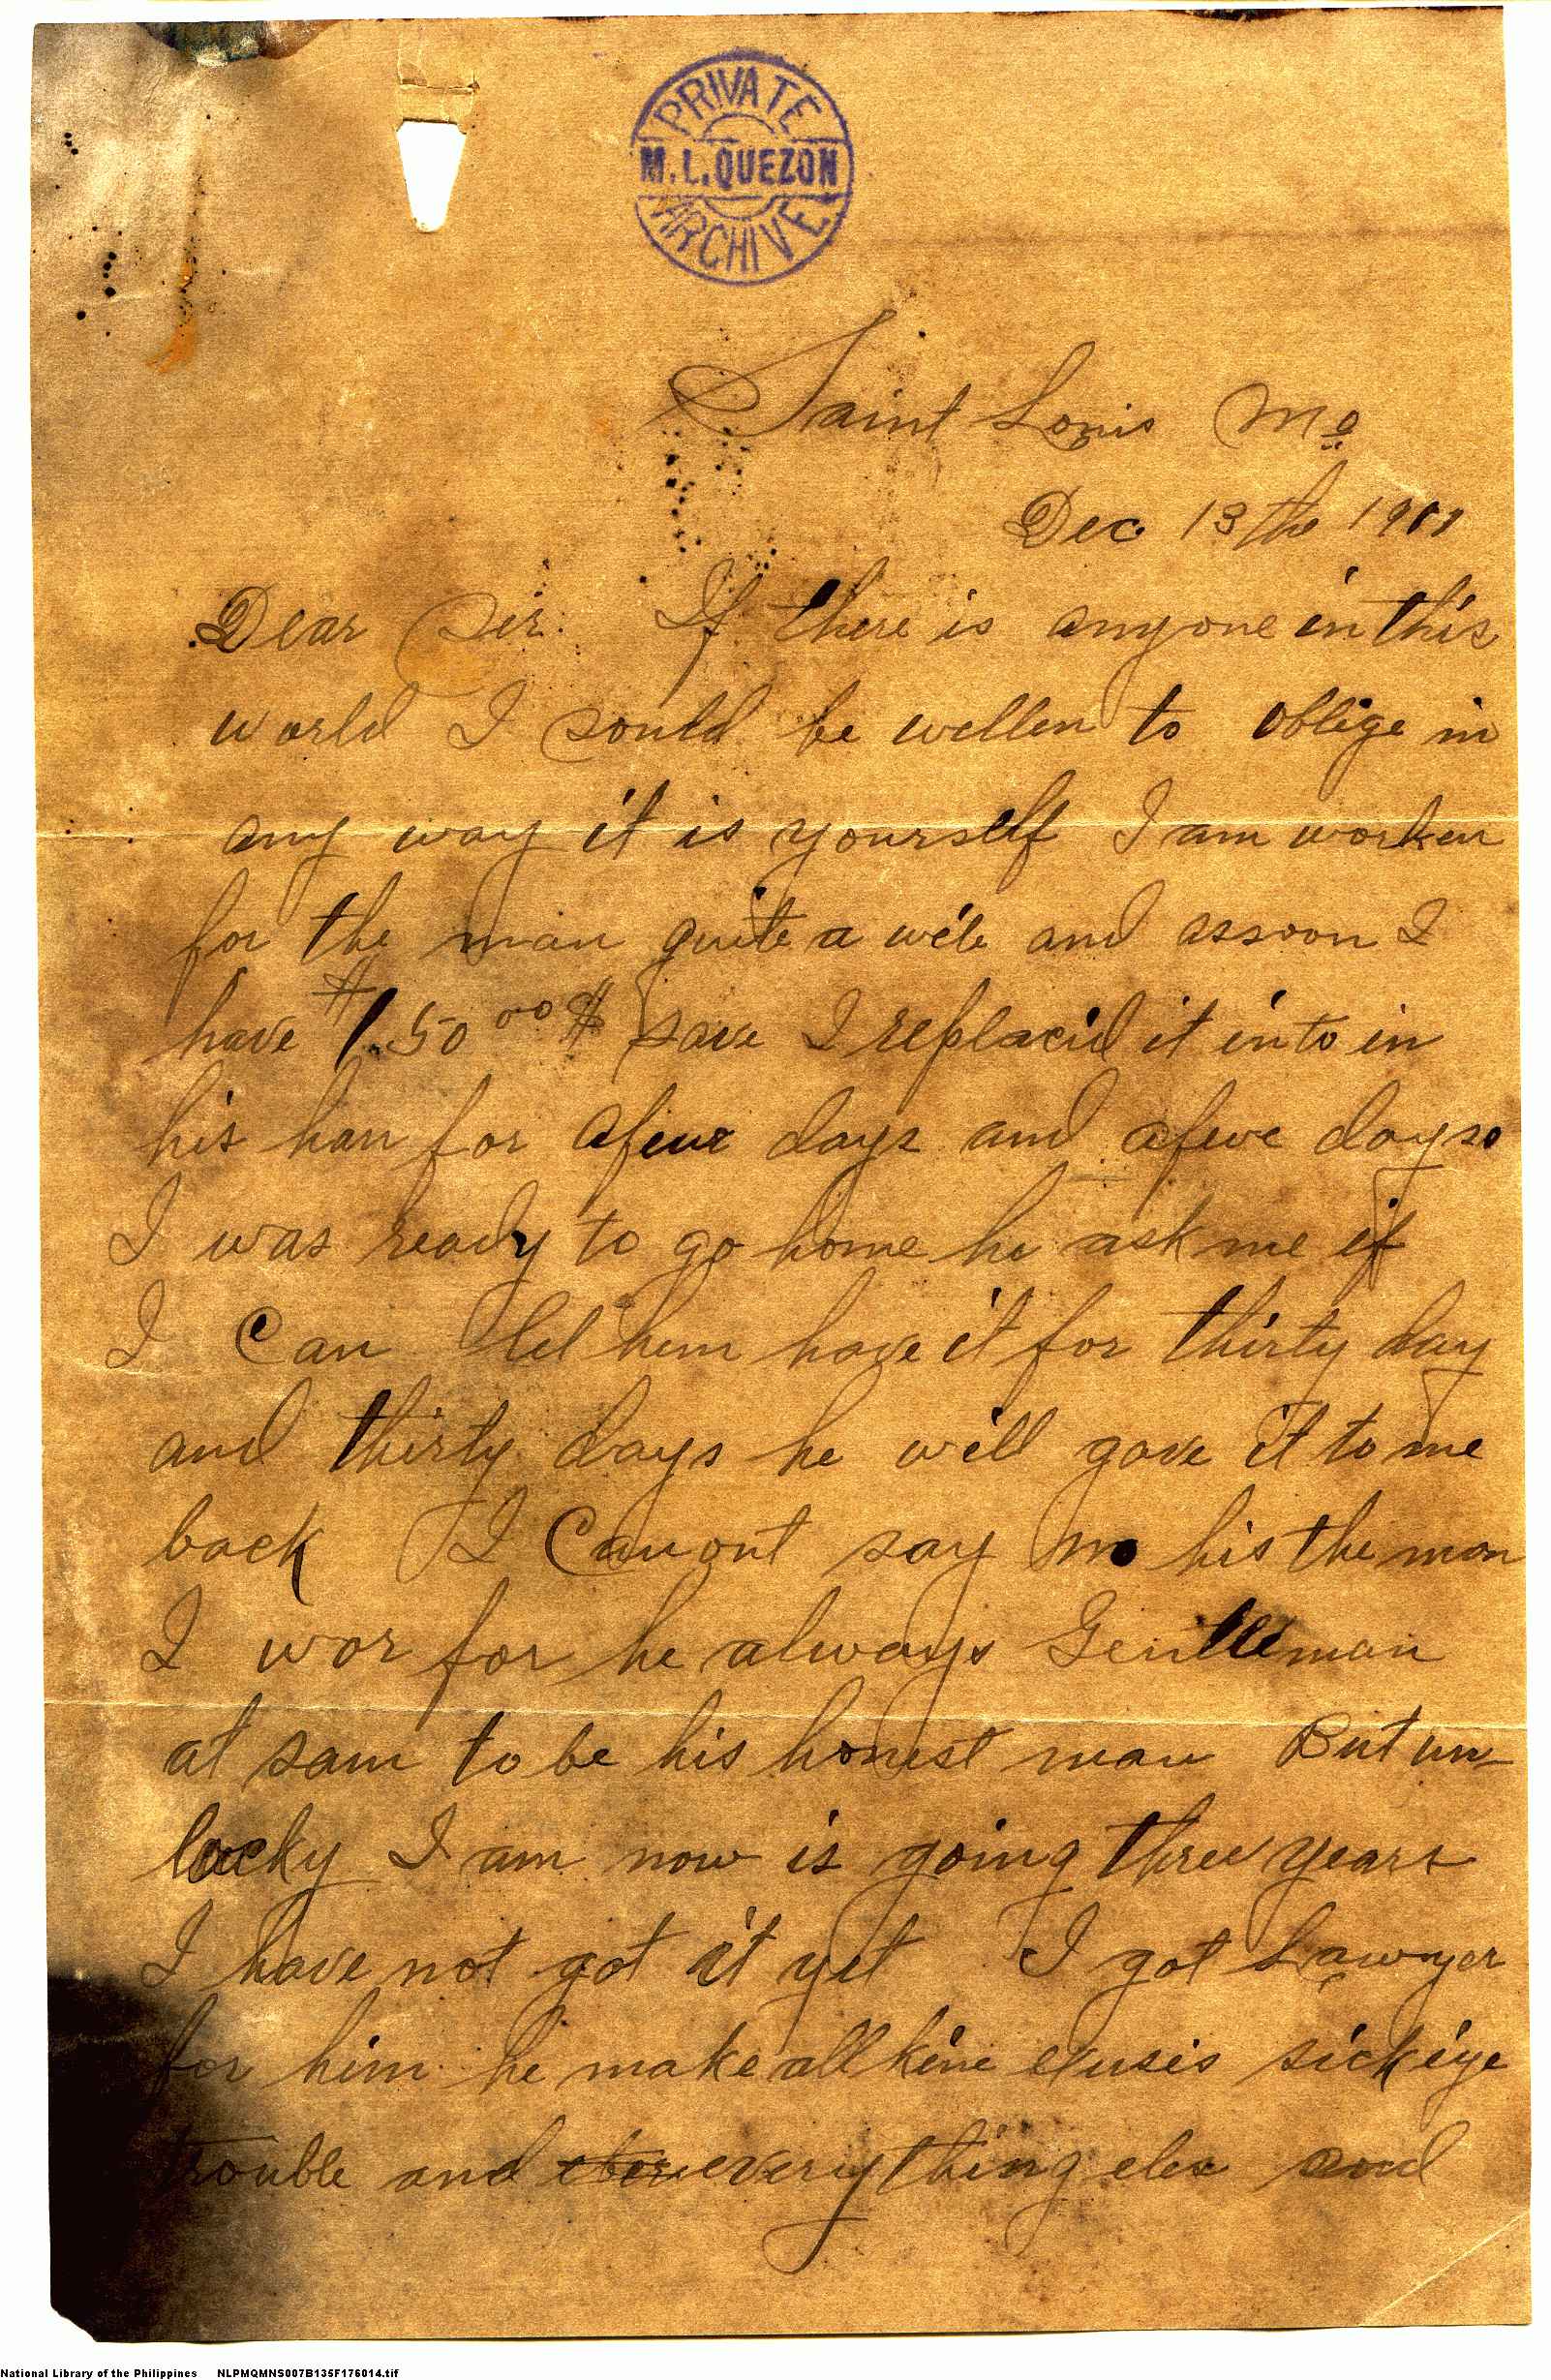 PRIVATE
M. L. QUEZON
ARCHIVE
Saint Louis Mo
Dec 13th 1911
Dear Sir. If there is anyone in this
world I sould be wellen to oblige in
any way it is yourself I am worken
for the man quite a wile and assoon I
have $1.50 00 $ save I replacid it into in
his han for afeue days and afewe days
I was ready to go home he ask me if
I Can let hem have it for thirty day
and thirty days he will gave it to me
back I Canont say no his the man
I wor for he always Gentleman
at sam to be his honest man But un-
lucky I am now is going three years
I have not got it yet I got Lawyer
for him he make all kine exusis sick iye
trouble and everything elex and
National Library of the Philippines NLPMQMNS007B135F176014.tif